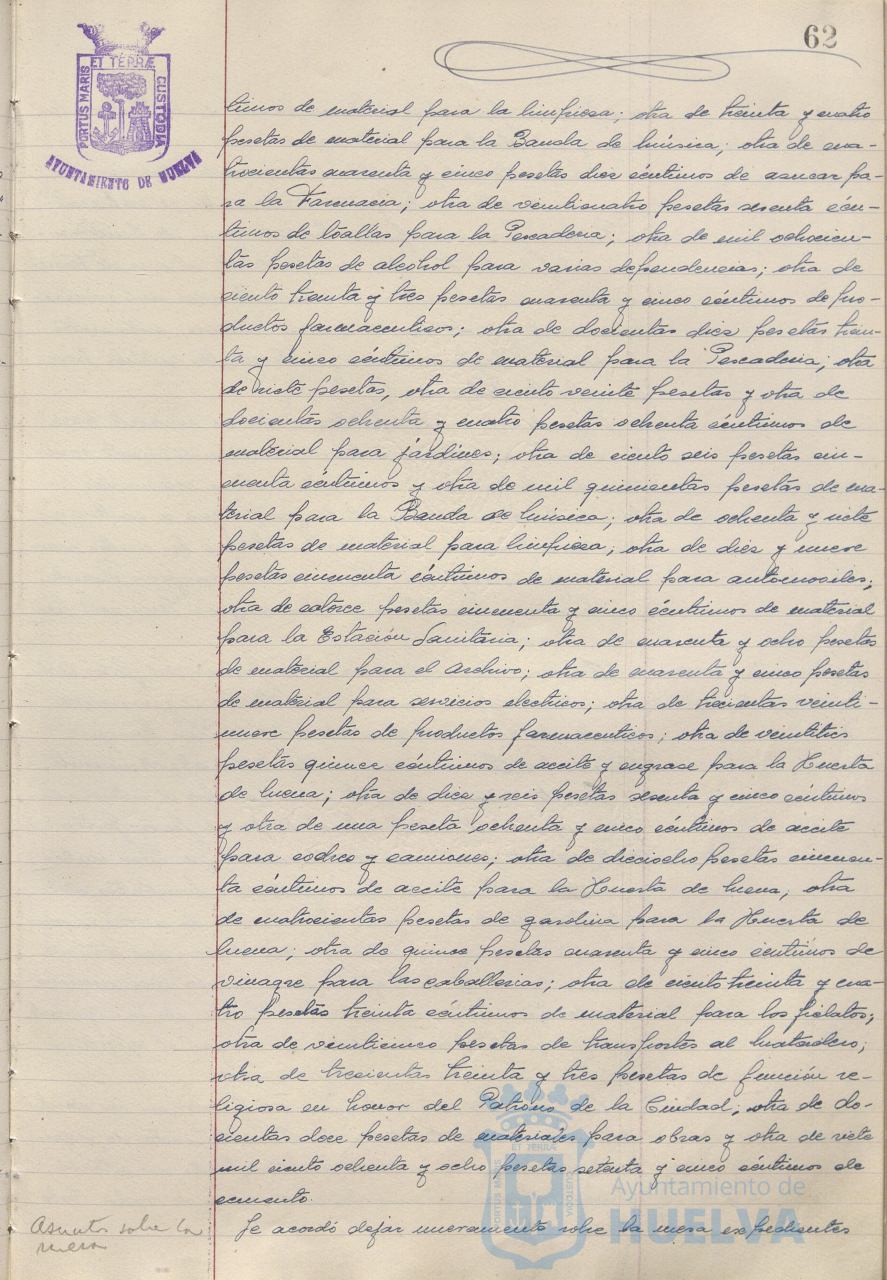 62
PORTUS MARIS
ET TERRÆ
CUSTODIA
AYUNTAMIENTO DE HUELVA
timos de material para la limpiesa; otra de treinta y cuatro
pesetas de material para la Banda de Música; otra de cua-
trocientas cuarenta y cinco pesetas diez céntimos de azucar pa-
ra la Farmacia; otra de veinticuatro pesetas sesenta cén-
timos de toallas para la Pescaderia; otra de mil ochocien-
tas pesetas de alcohol para varias dependencias; otra de
ciento treinta y tres pesetas cuarenta y cinco céntimos de pro-
ductos farmaceuticos; otra de docientas diez pesetas trein-
ta y cinco céntimos de material para la Pescaderia; otra
de siete pesetas, otra de ciento veinte pesetas y otra de
docientas ochenta y cuatro pesetas ochenta céntimos de
material para jardines; otra de ciento seis pesetas cin-
cuenta céntimos y otra de mil quinientas pesetas de ma-
terial para la Banda de Música; otra de ochenta y siete
pesetas de material para limpiesa; otra de diez y nueve
pesetas cincuenta céntimos de material para automoviles;
otra de catorce pesetas cincuenta y cinco céntimos de material
para la Estación Sanitaria; otra de cuarenta y ocho pesetas
de material para el Archivo; otra de cuarenta y cinco pesetas
de material para servicios electricos; otra de trecientas veinti-
nueve pesetas de productos farmaceuticos; otra de veintitres
pesetas quince céntimos de aceite y engrase para la Huerta
de Mena; otra de diez y seis pesetas sesenta y cinco céntimos
y otra de una peseta ochenta y cinco céntimos de aceite
para coches y camiones; otra de dieciocho pesetas cincuen-
ta céntimos de aceite para la Huerta de Mena; otra
de cuatrocientas pesetas de gasolina para la Huerta de
Mena; otra de quince pesetas cuarenta y cinco céntimos de
vinagre para las caballerias; otra de ciento treinta y cua-
tro pesetas treinta céntimos de material para los fielatos;
otra de veinticinco pesetas de transportes al Matadero;
otra de trescientas treinta y tres pesetas de función re-
ligiosa en honor del Patrono de la Ciudad; otra de do-
cientas doce pesetas de materiales para obras y otra de siete
mil ciento ochenta y ocho pesetas setenta y cinco céntimos de
cemento.
Asuntos sobre la
mesa
Se acordó dejar nuevamente sobre la mesa expedientes
PORTUS MARIS
ET TERRÆ
CUSTODIA
Ayuntamiento de
HUELVA